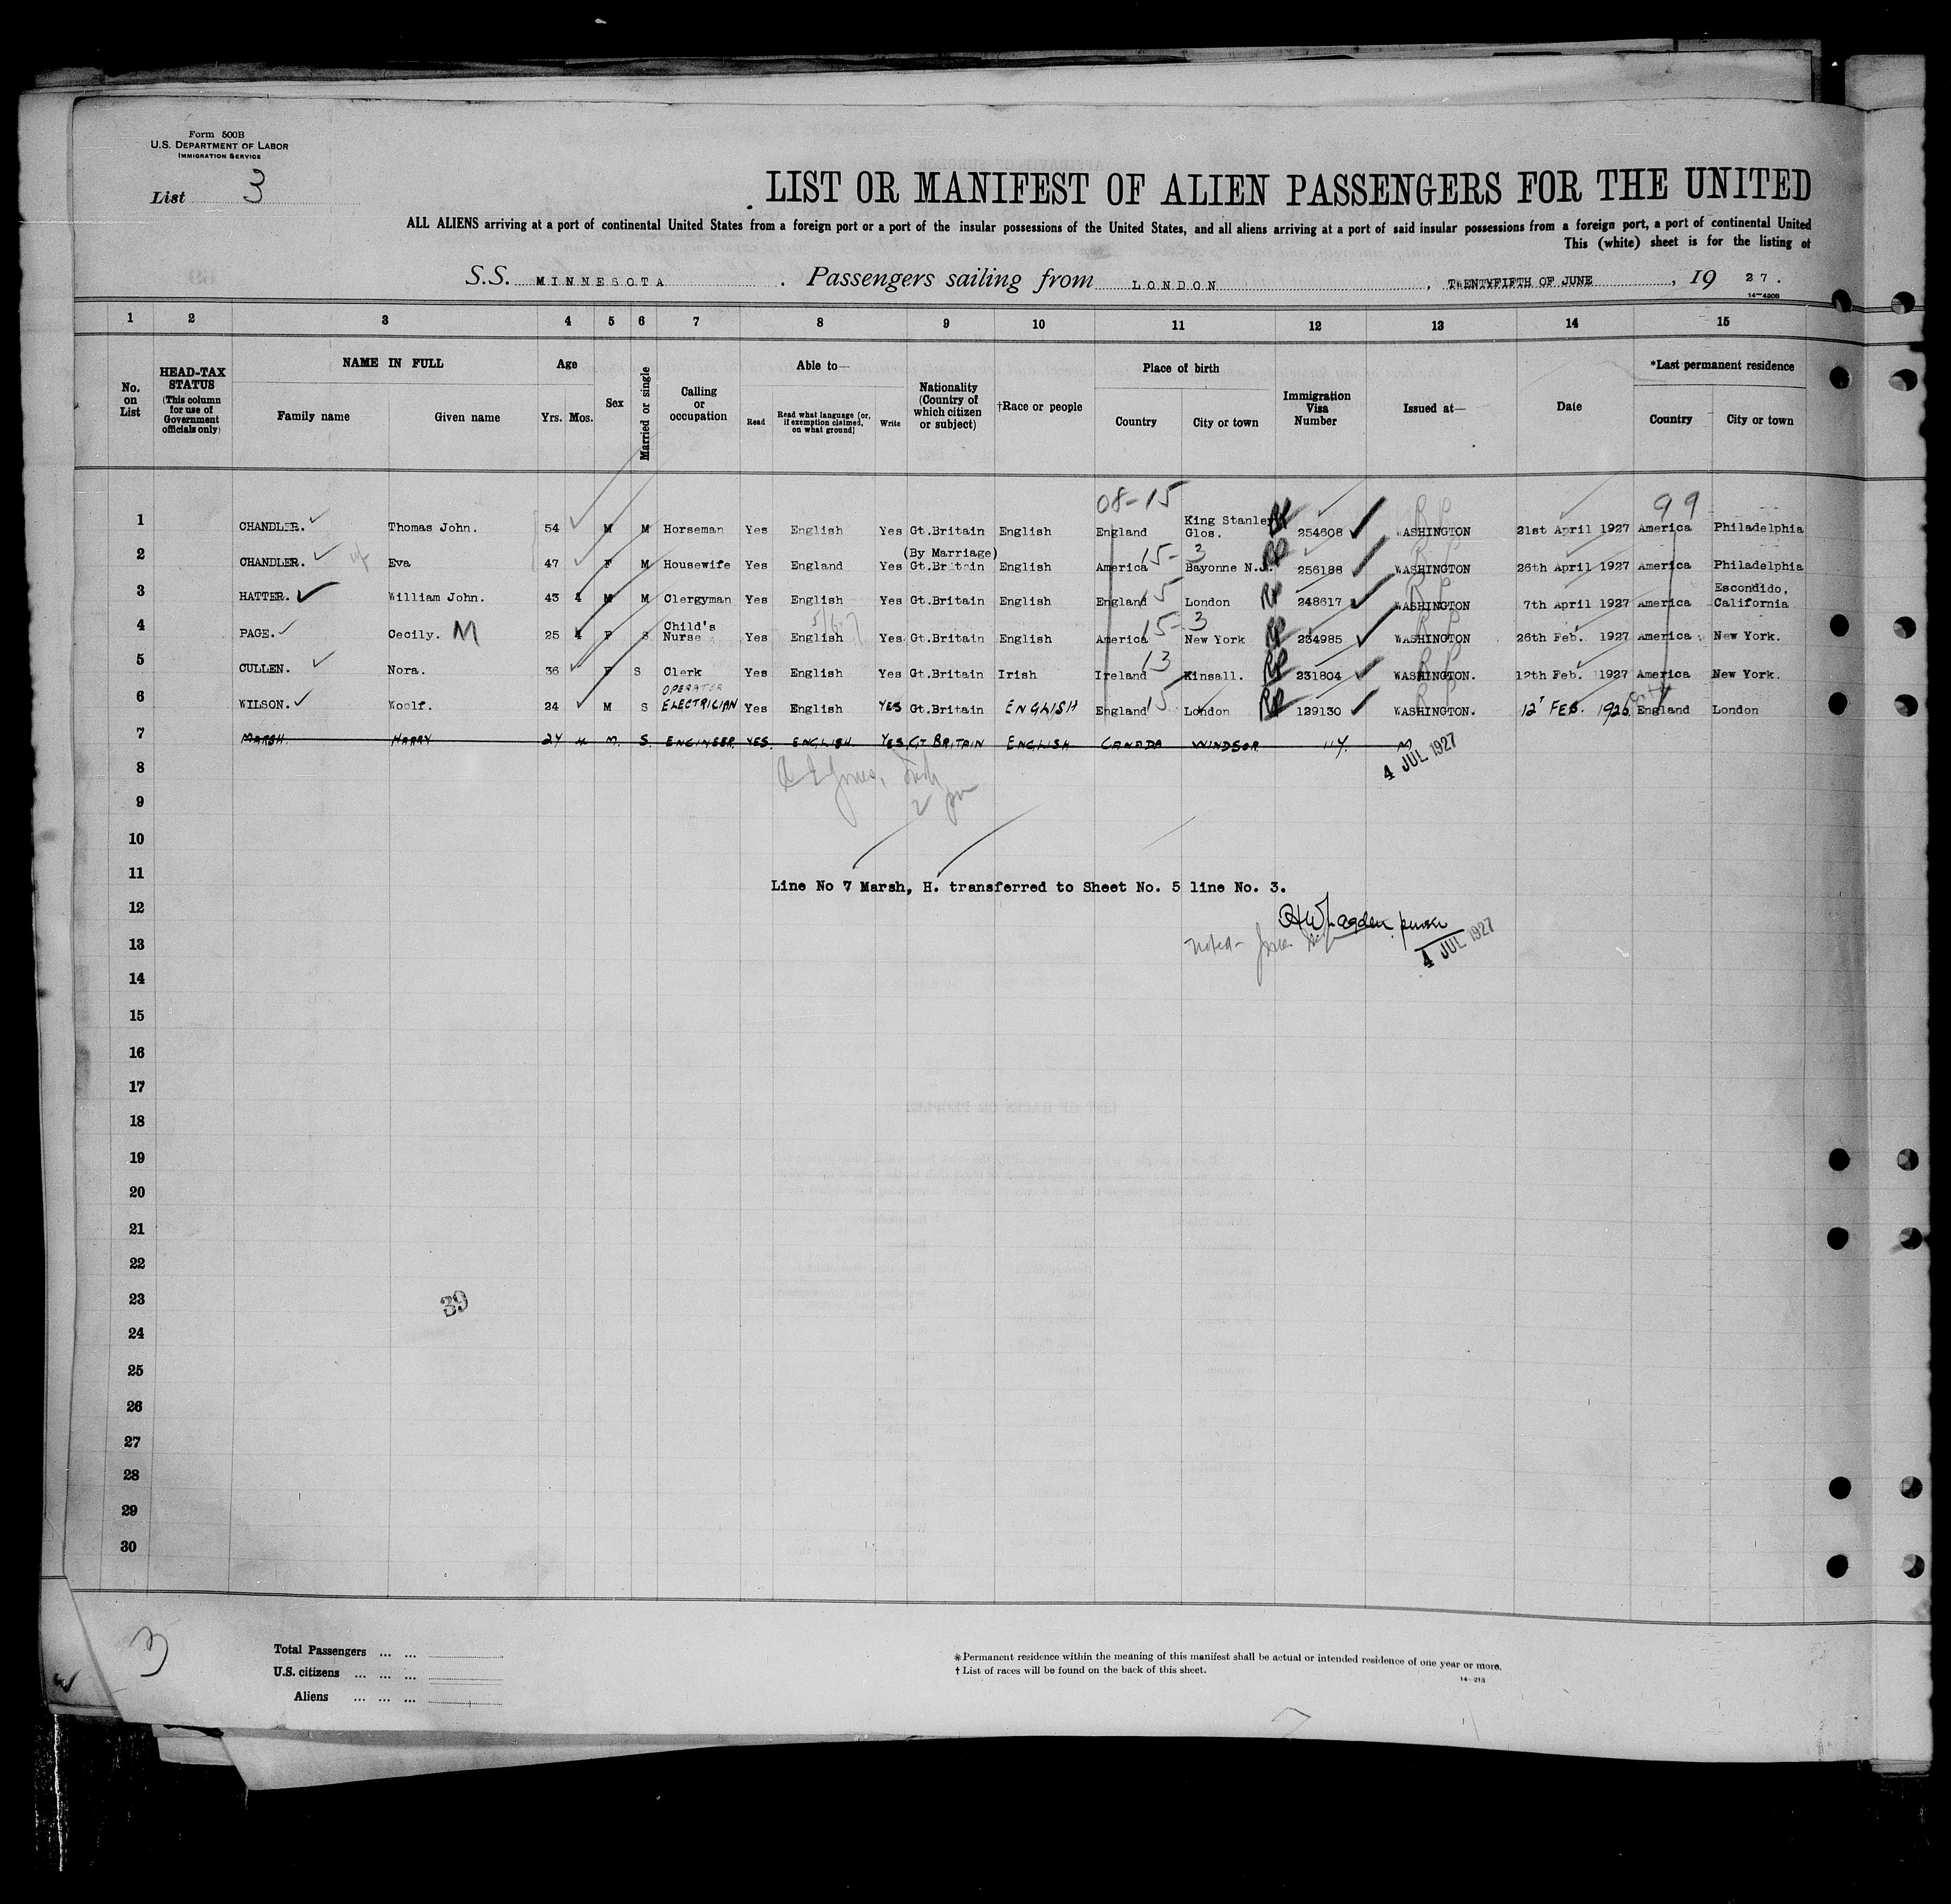 Form 500B
U.S. DEPARTMENT OF LABOR
IMMIGRATION SERVICE
List 3
LIST OR MANIFEST OF ALIEN PASSENGERS FOR THE UNITED
ALL ALIENS arriving at a port of continental United States from a foreign port or a port of the insular possessions of the United States, and all aliens arriving at a port of said insular possessions from a foreign port, a port of continental United
This (white) sheet is for the listing of
S.S. MINNESOTA . Passengers sailing from LONDON , TWENTYFIFTH OF JUNE , 19 27.
14—4208
1 2 3 4 5 6 7 8 9 10 11 12 13 14 15
No. on List
HEAD-TAX STATUS (This column for use of Government officials only)
NAME IN FULL
Family name Given name
Age
Yrs. Mos.
Sex
Married or single
Calling or occupation
Able to—
Read Read what language [or, if exemption claimed, on what ground] Write
Nationality (Country of which citizen or subject)
†Race or people
Place of birth
Country City or town
Immigration Visa Number
Issued at—
Date
*Last permanent residence
Country City or town
08-15 99
1 CHANDLER. Thomas John. 54 M M Horseman Yes English Yes Gt.Britain English England King Stanley Glos. 254608 WASHINGTON 21st April 1927 America Philadelphia
2 CHANDLER. Eva 47 F M Housewife Yes England Yes (By Marriage) Gt.Britain English America 15-3 Bayonne N.J. 256188 WASHINGTON 26th April 1927 America Philadelphia
3 HATTER. William John. 43 4 M M Clergyman Yes English Yes Gt.Britain English England 15 London 248617 WASHINGTON 7th April 1927 America Escondido, California
4 PAGE. Cecily. M 25 4 F S Child's Nurse Yes English Yes Gt.Britain English America 15-3 New York 234985 WASHINGTON 26th Feb. 1927 America New York.
5 CULLEN. Nora. 36 F S Clerk Yes English Yes Gt.Britain Irish Ireland 13 Kinsall. 231804 WASHINGTON. 12th Feb. 1927 America New York.
6 WILSON. Woolf. 24 M S OPERATER ELECTRICIAN Yes English YES Gt.Britain ENGLISH England 15 London 129130 WASHINGTON. 12' FEB. 1926 England London
7 MARSH. HARRY 24 4 M. S. ENGINEER YES. ENGLISH. YES GT BRITAIN ENGLISH CANADA WINDSOR
4 JUL 1927
8
9
10
11
Line No 7 Marsh, H. transferred to Sheet No. 5 line No. 3.
12
13
noted-
4 JUL 1927
14
15
16
17
18
19
20
21
22
23
39
24
25
26
27
28
29
30
3
Total Passengers ... ...
U.S. citizens ... ... ...
Aliens ... ... ...
*Permanent residence within the meaning of this manifest shall be actual or intended residence of one year or more.
†List of races will be found on the back of this sheet.
14—213